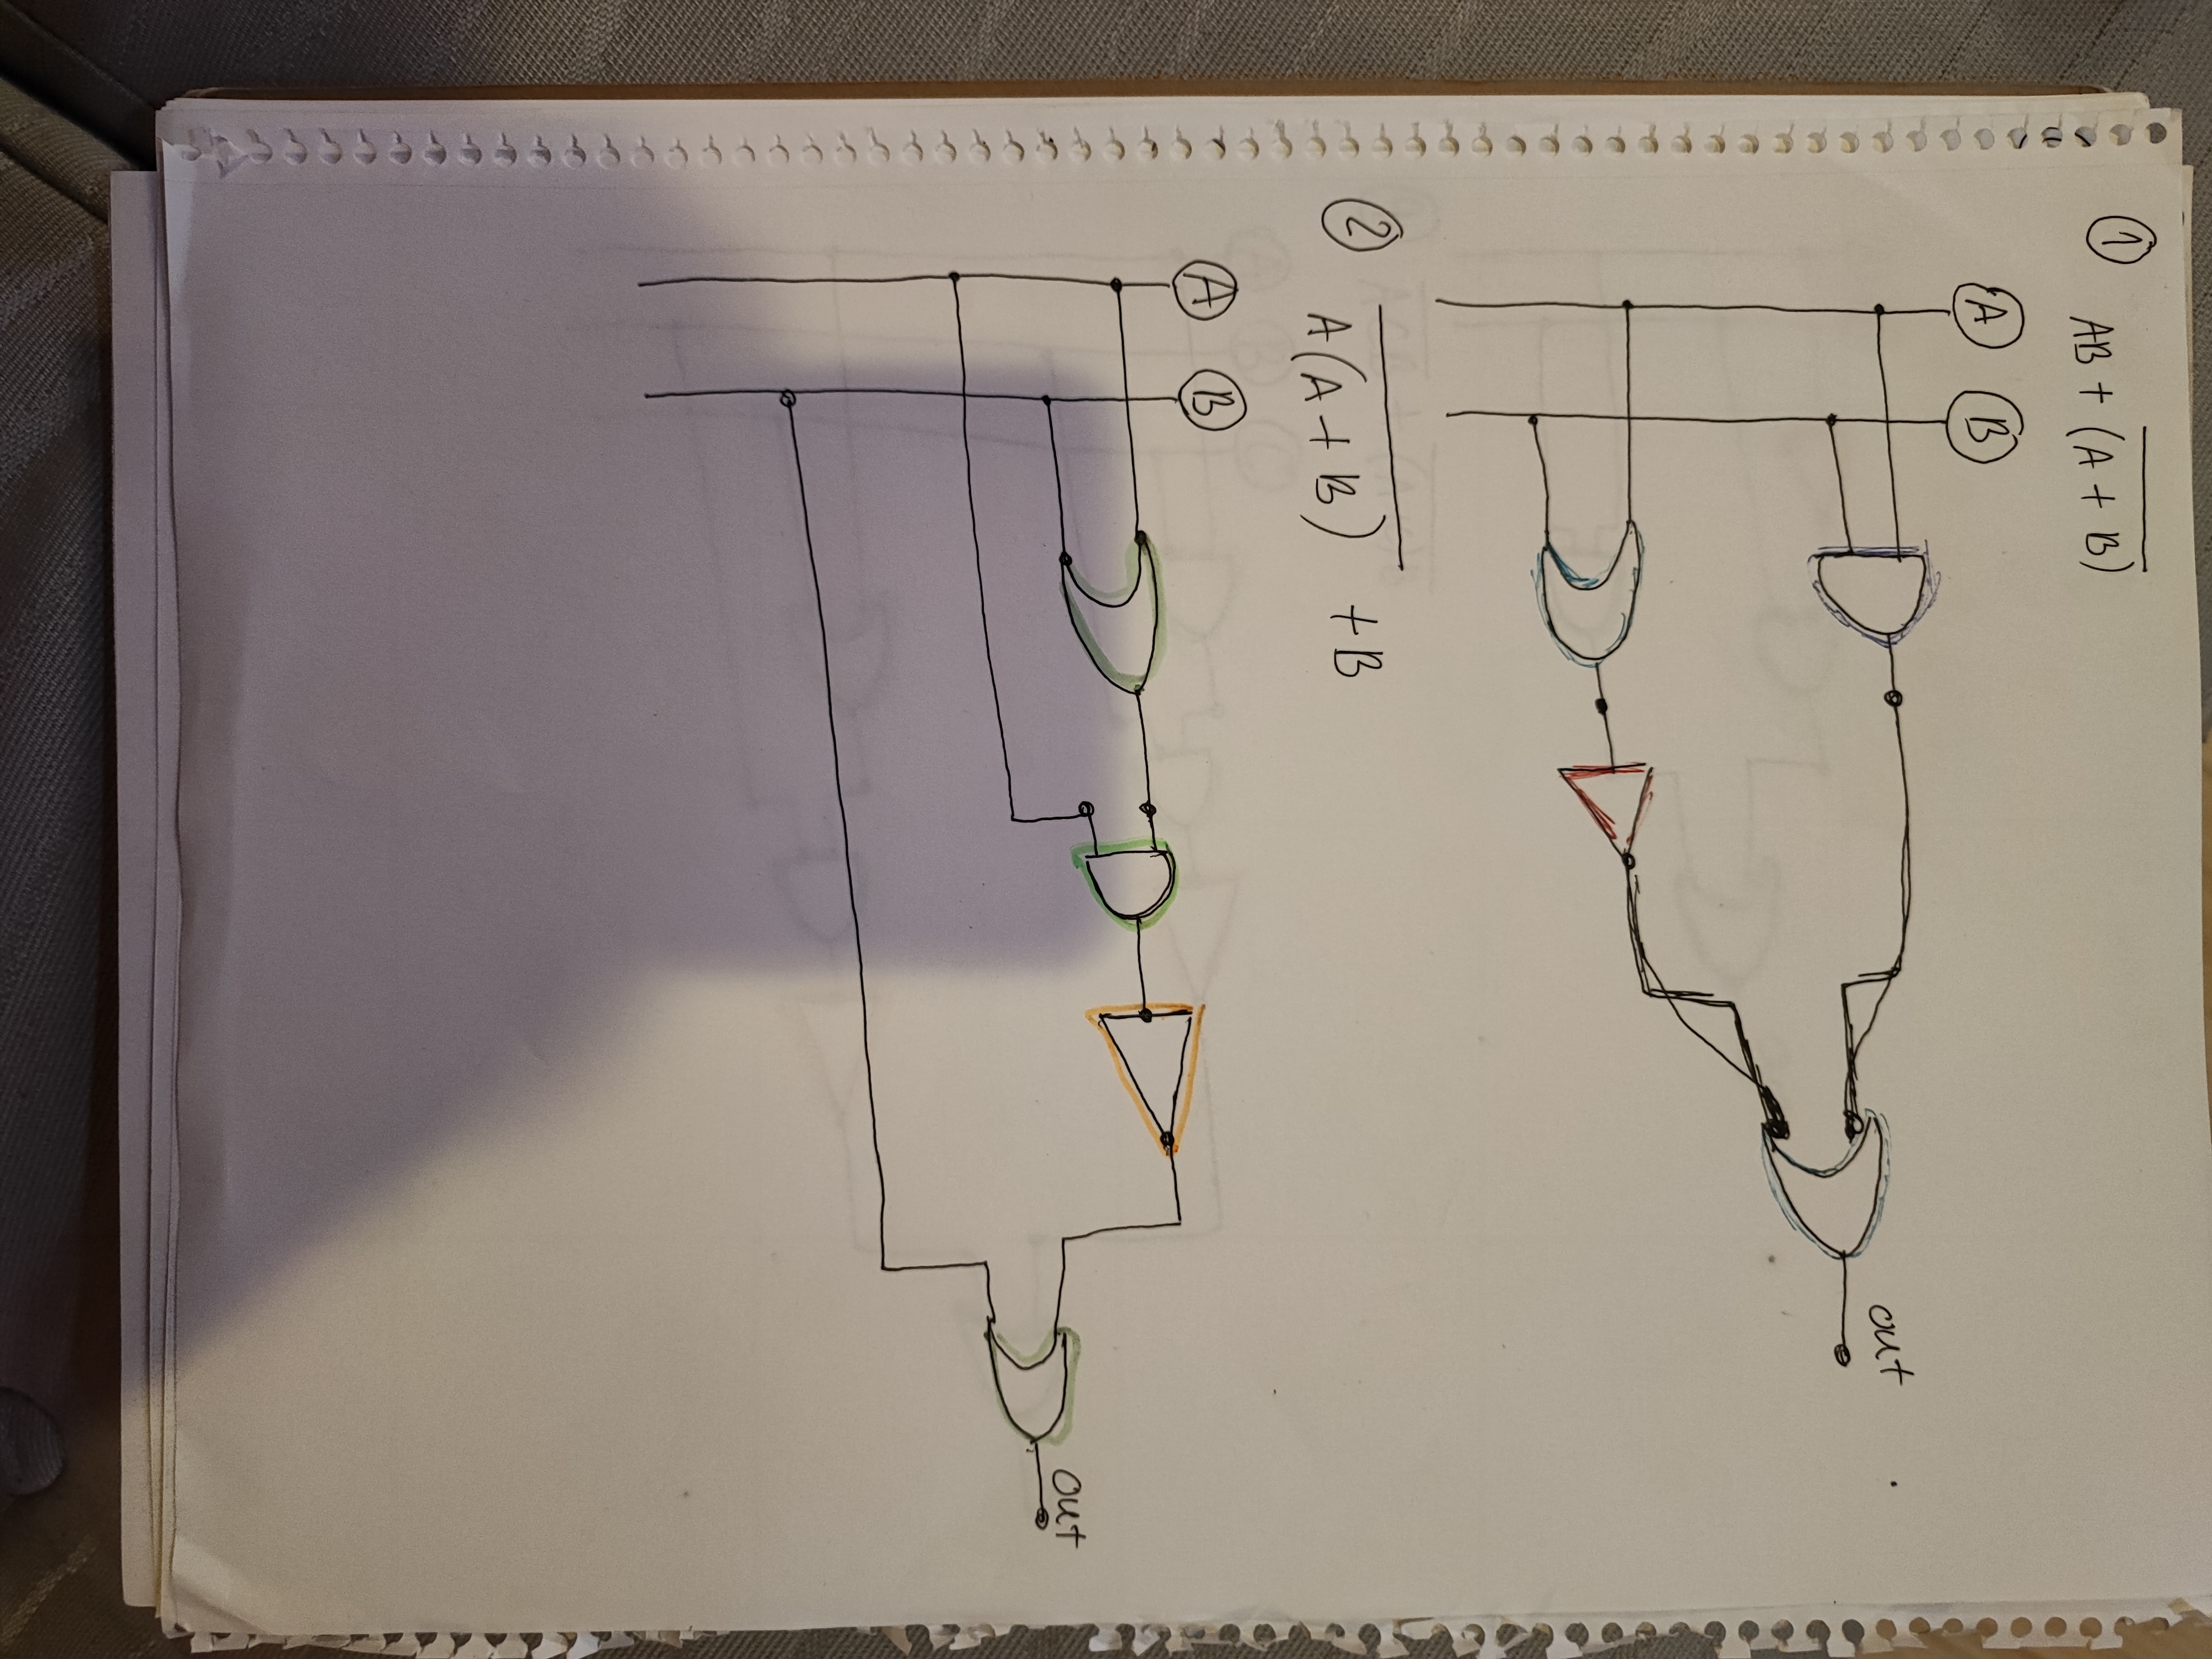 ① AB + (A + B)‾
Ⓐ Ⓑ
out
② A(A + B)‾ + B
Ⓐ Ⓑ
out